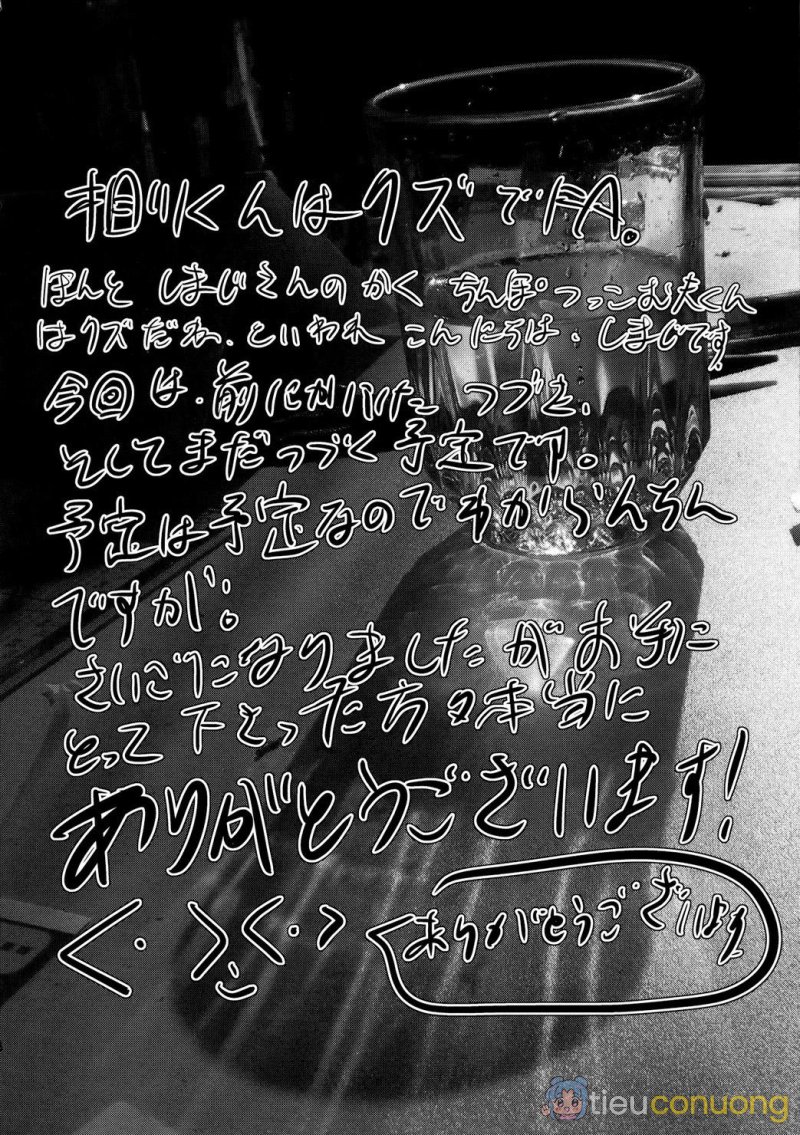 相川くんはクズでFA。
ほんと しまじさんのかく ちんぽつっこむ夫くん
はクズだね、といわれ こんにちは、しまじです。
今回は、前にかいた つづき、
そしてまだつづく予定です。
予定は予定なのでわからんちん
ですが。
さいごになりましたがお手に
とって下さった方々本当に
ありがとうございます!
<・ > <・>
ありがとうございます
tieuconuong